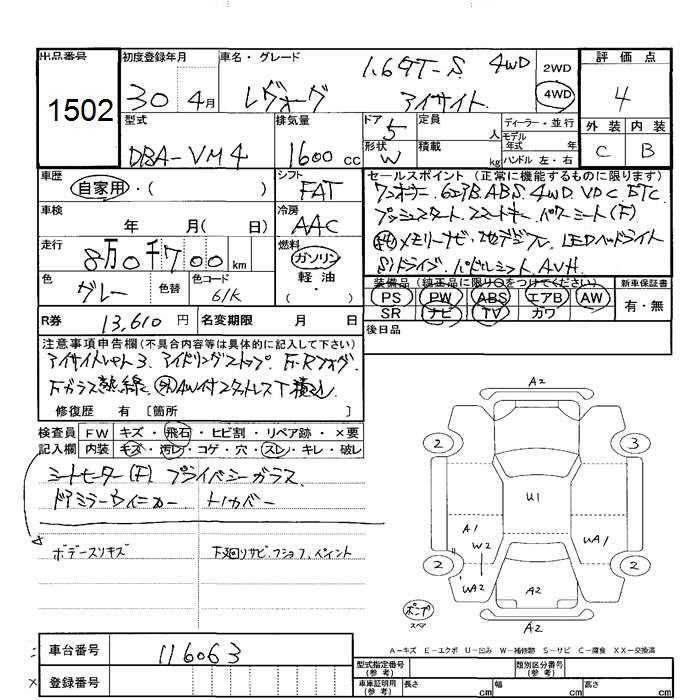 出品番号 初度登録年月 車名・グレード 1.6GT-S 4WD 2WD 評価点
1502 30 4月 レヴォーグ アイサイト 4WD 4
型式 排気量 ドア 5 定員 人 ディーラー・並行 外装 内装
DBA-VM4 1600cc 形状 W 積載 kg モデル年式 年 ハンドル 左・右 C B
車歴 自家用・( ) シフト FAT セールスポイント(正常に機能するものに限ります)
ワンオーナー 6エアB ABS 4WD VDC ETC
車検 年 月( 日) 冷房 AAC プッシュスタート スマートキー パワーシート(F)
走行 8万0千700km 燃料 ガソリン 軽油 ・( ) メモリーナビ・地デジTV LEDヘッドライト
SIドライブ パドルシフト AVH
色 グレー 色替 色コード 61K 装備品(純正品に限り○をつけてください) 新車保証書
PS PW ABS エアB AW 有・無
SR ナビ TV カワ
R券 13,610円 名変期限 月 日 後日品
注意事項申告欄(不具合内容等は具体的に記入して下さい)
アイサイトVer.3 アイドリングストップ F・Rフォグ
Fガラス熱線 AW付スタットレスT積込
修復歴 有 〔箇所 〕
検査員 FW キズ・飛石・ヒビ割・リペア跡・×要
記入欄 内装 キズ・汚レ・コゲ・穴・スレ・キレ・破レ
シートヒーター(F) プライバシーガラス
ドアミラーウインカー トノカバー
ボデースリキズ 下廻リサビ・フショク・ペイント
A2
2 3
U1
A1 W2 WA1
2 WA2 A2 2
パンプ スペア A2
A-キズ E-エクボ U-凹み W-補修跡 S-サビ C-腐食 XX-交換済
車台番号 116063
登録番号
型式指定番号(参考) 類別区分番号(参考)
車庫証明用(参考) 長さ cm 幅 cm 高さ cm